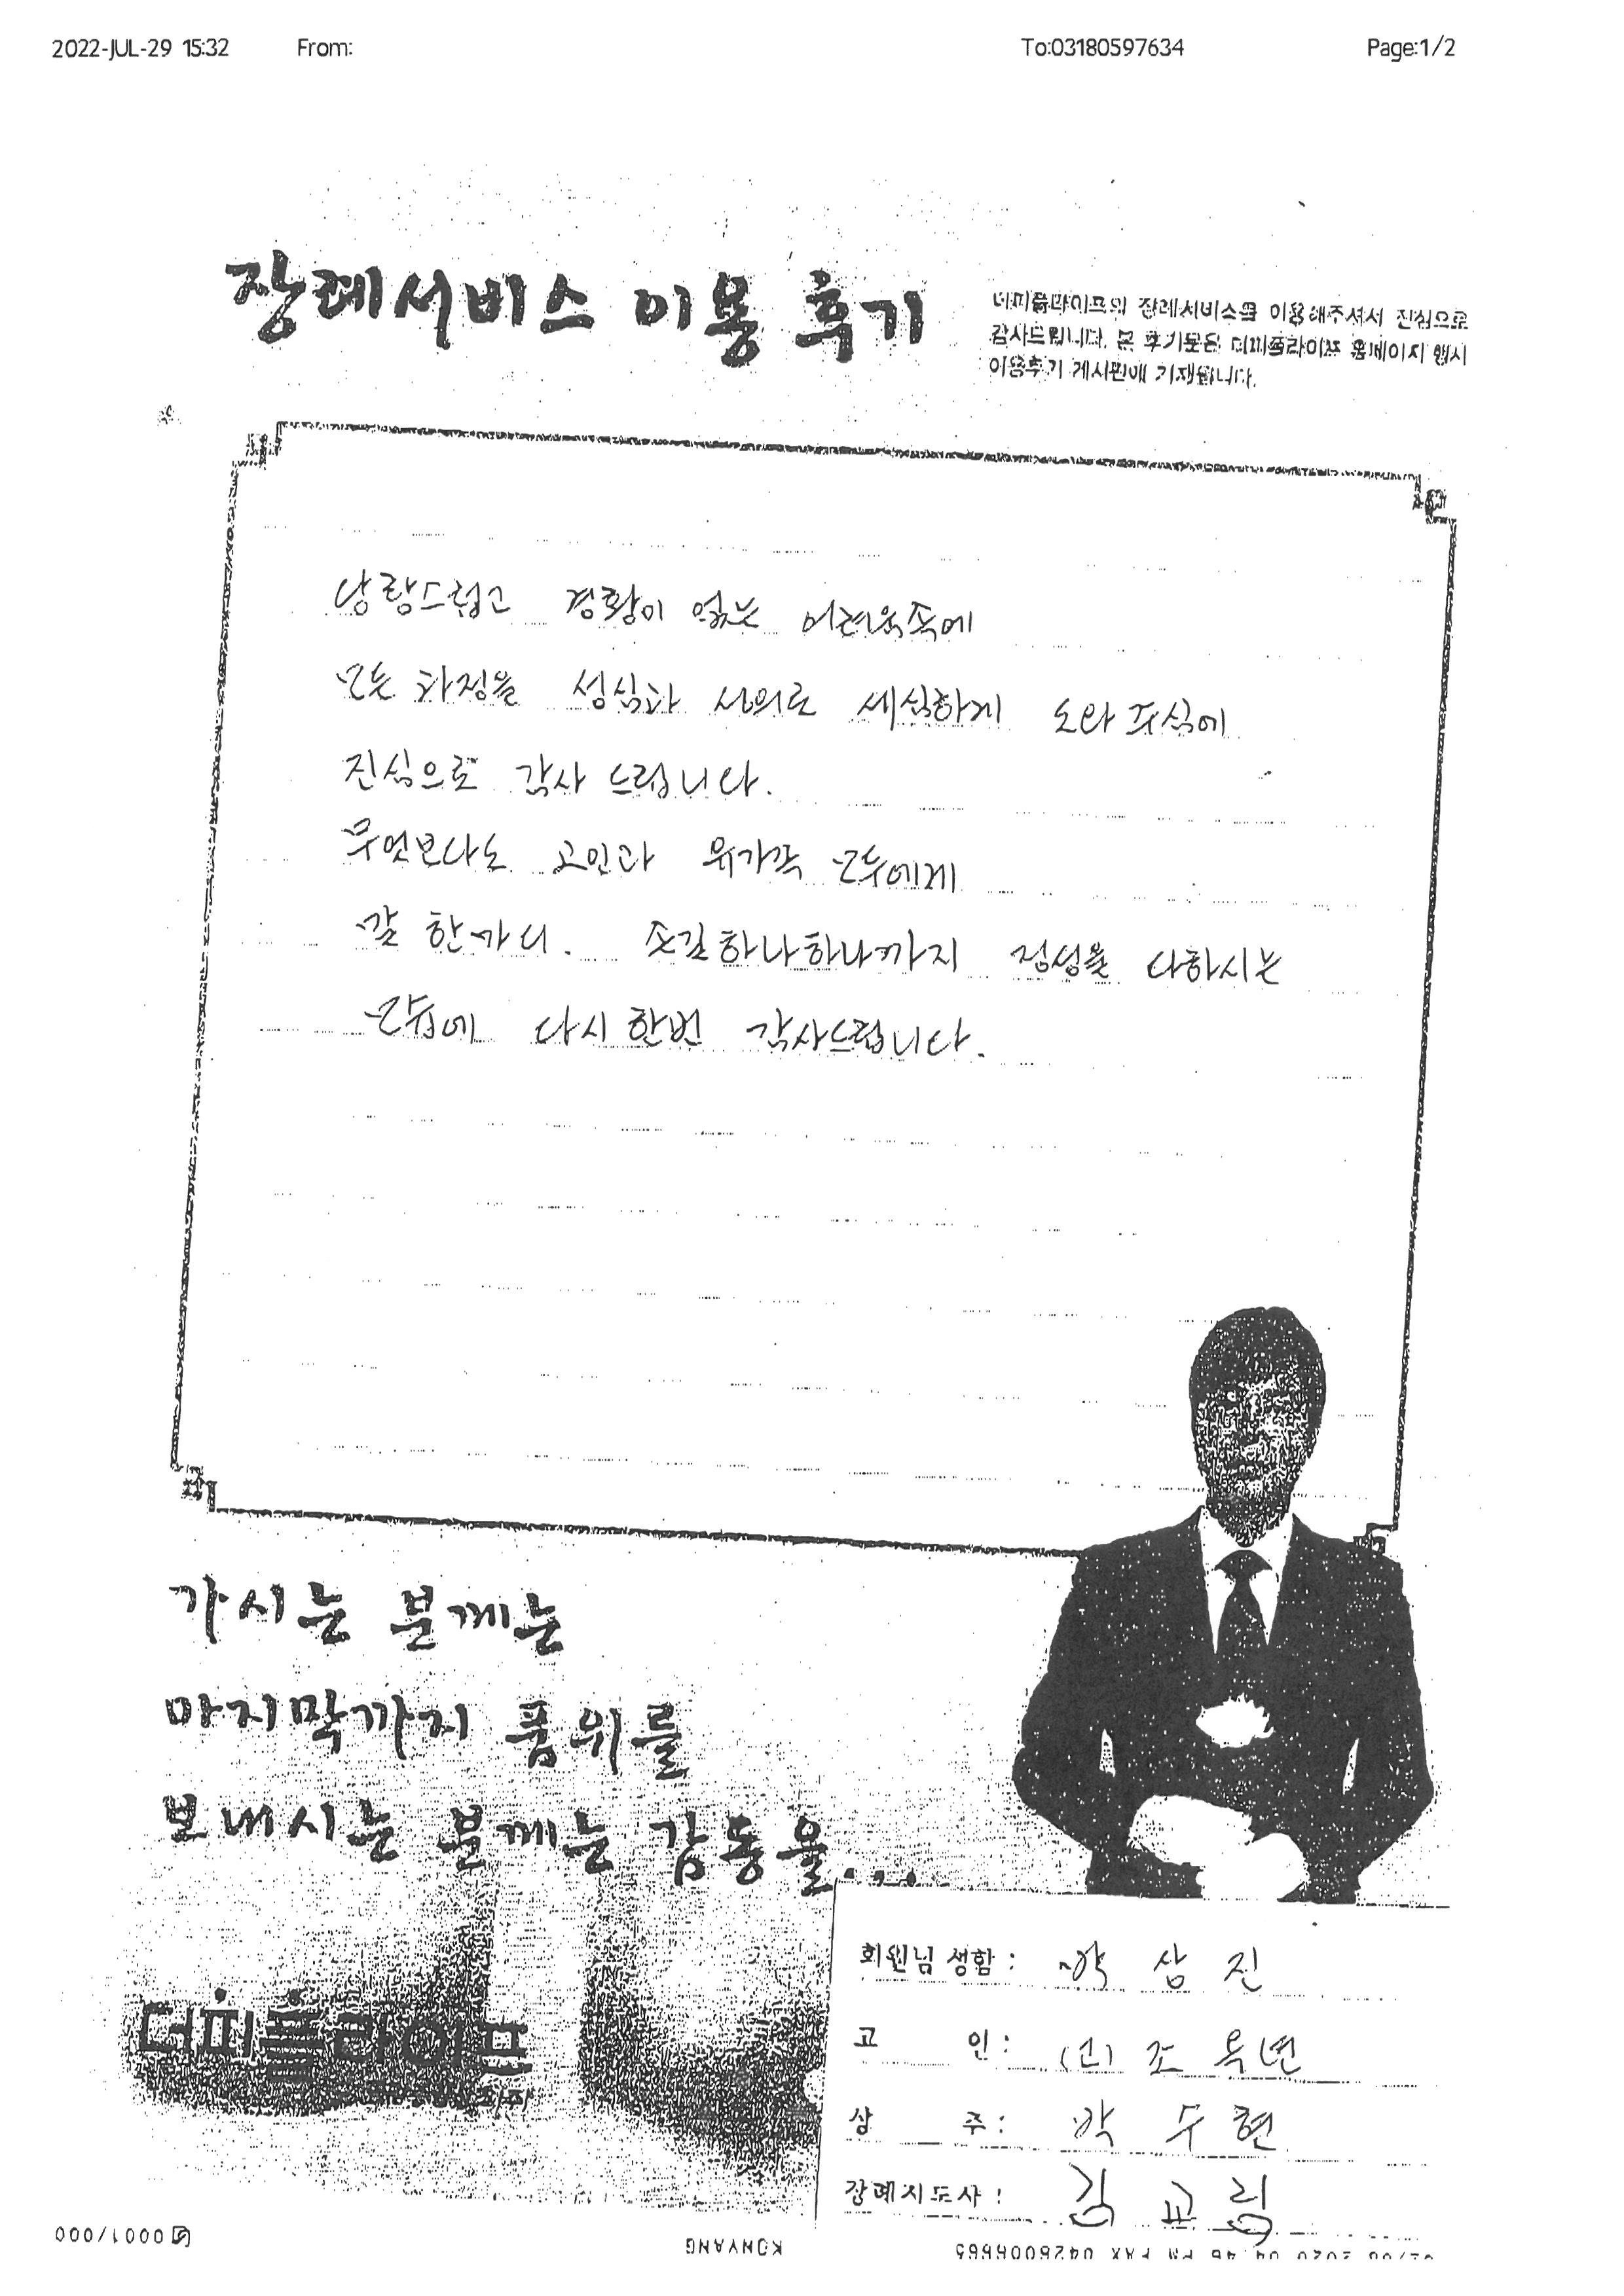 2022-JUL-29 15:32 From: To:03180597634 Page:1/2
장례서비스 이용 후기
더피플라이프의 장례서비스를 이용해주셔서 진심으로
감사드립니다. 본 후기문은 더피플라이프 홈페이지 행사
이용후기 게시판에 기재됩니다.
당황스럽고 경황이 없는 어려움속에
모든 과정을 성심과 성의로 세심하게 도와주심에
진심으로 감사 드립니다.
무엇보다도 고인과 유가족 모두에게
말 한마디. 손길하나하나까지 정성을 다하시는
모습에 다시한번 감사드립니다.
가시는 분께는
마지막까지 품위를
보내시는 분께는 감동을...
더피플라이프
회원님 성함 : 박 삼 진
고 인 : (故) 조 옥 년
상 주 : 박 수 현
장례지도사 : 김 교 림
0001/000
KONYANG
PM FAX 0426006665